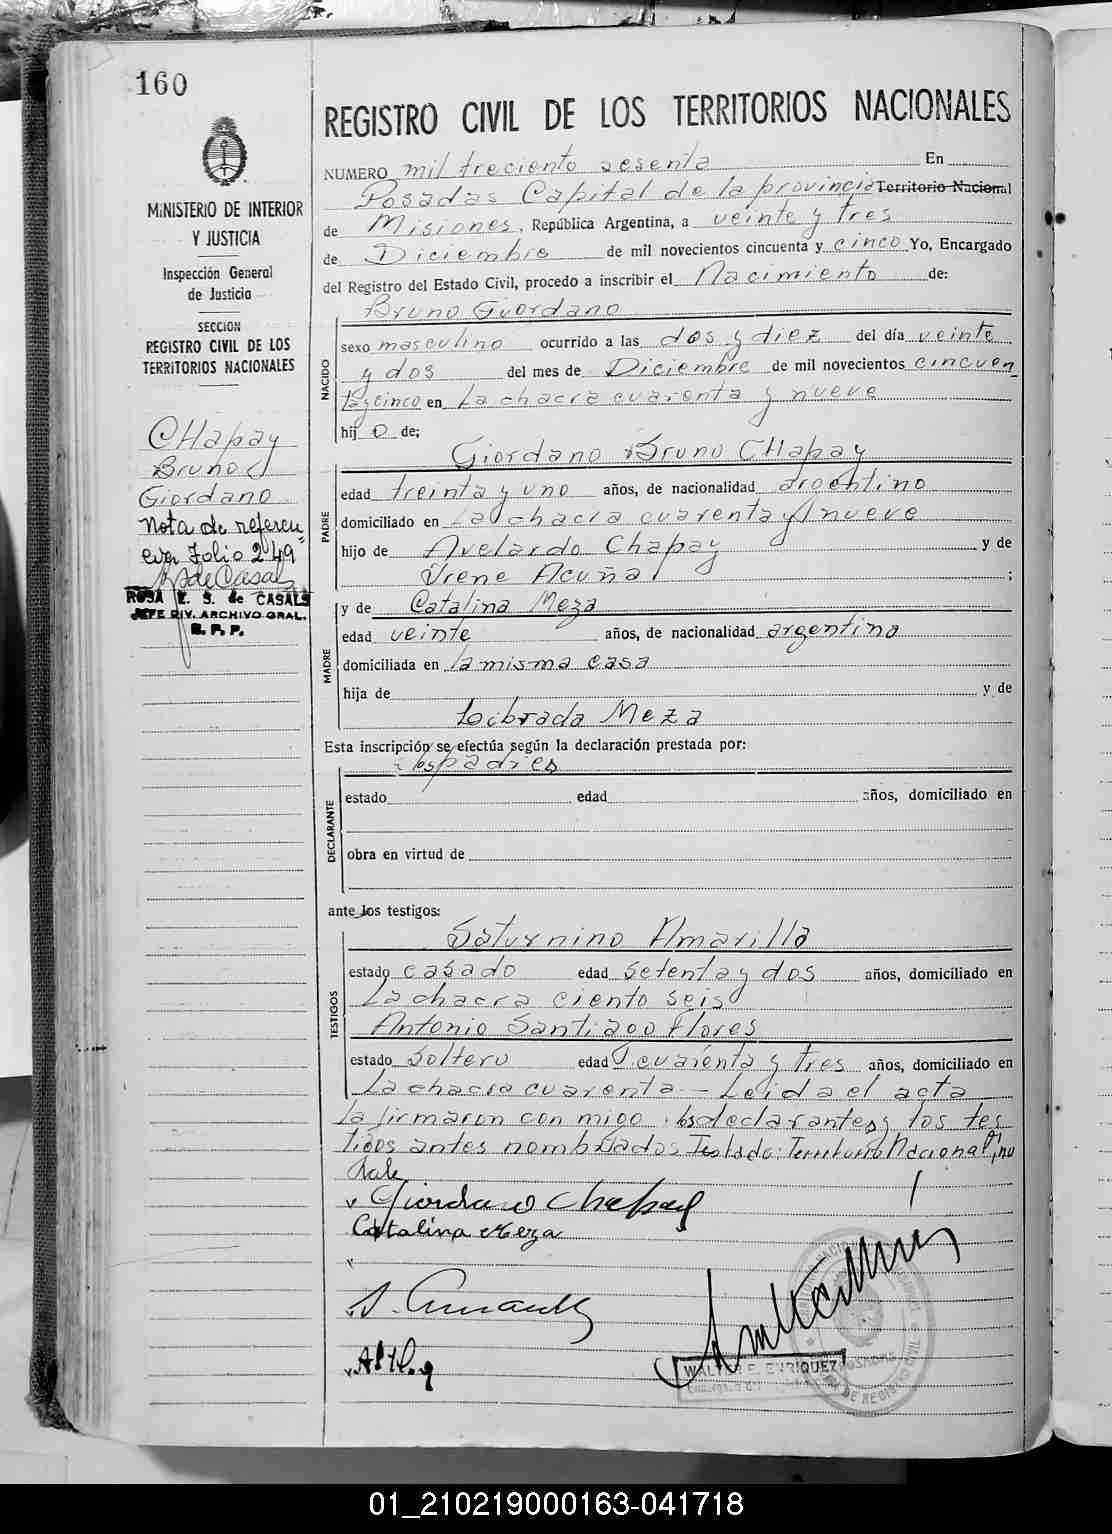 160
MINISTERIO DE INTERIOR
Y JUSTICIA
Inspección General
de Justicia
SECCION
REGISTRO CIVIL DE LOS
TERRITORIOS NACIONALES
CHapay
Bruno
Giordano
Nota de referen
cia Folio 249
R de Casals
ROSA E. S. de CASALS
JEFE DIV. ARCHIVO GRAL.
R. P. P.
REGISTRO CIVIL DE LOS TERRITORIOS NACIONALES
NUMERO mil treciento sesenta En
Posadas Capital de la provincia Territorio Nacional
de Misiones, República Argentina, a veinte y tres
de Diciembre de mil novecientos cincuenta y cinco Yo, Encargado
del Registro del Estado Civil, procedo a inscribir el Nacimiento de:
Bruno Giordano
NACIDO
sexo masculino ocurrido a las dos y diez del día veinte
y dos del mes de Diciembre de mil novecientos cincuen
tay cinco en La chacra cuarenta y nueve
hij o de:
Giordano Bruno CHapay
PADRE
edad treinta y uno años, de nacionalidad argentino
domiciliado en La chacra cuarenta y nueve
hijo de Avelardo Chapay y de
Irene Acuña ;
MADRE
y de Catalina Meza
edad veinte años, de nacionalidad argentina
domiciliada en la misma casa
hija de y de
Librada Meza
Esta inscripción se efectúa según la declaración prestada por:
los padres
DECLARANTE
estado edad años, domiciliado en
obra en virtud de
ante los testigos:
Saturnino Amarilla
TESTIGOS
estado casado edad setenta y dos años, domiciliado en
La chacra ciento seis
Antonio Santiago Flores
estado Soltero edad cuarenta y tres años, domiciliado en
La chacra cuarenta - Leida el acta
la firmaron con migo los declarantes y los tes
tigos antes nombrados Testado: Territorio Nacional, no
vale
Giordano Chapay
Catalina Meza
WALTER E. ENRIQUEZ
01_210219000163-041718